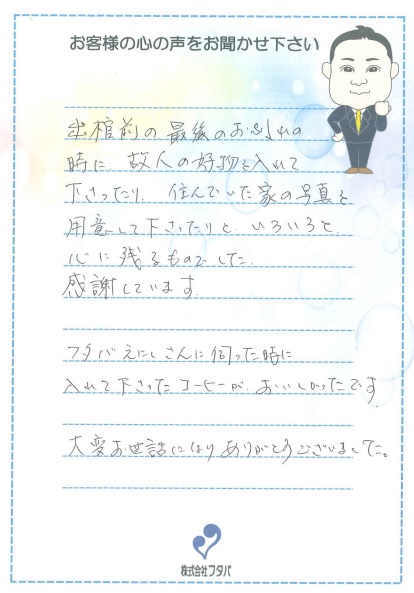 お客様の心の声をお聞かせ下さい
出棺前の最後のお別れの
時に 故人の好物を入れて
下さったり、住んでいた家の写真を
用意して下さったりと、いろいろと
心に残るものでした。
感謝しています。
フタバえにしさんに伺った時に
入れて下さったコーヒーが、おいしかったです。
大変お世話になりありがとうございました。
株式会社フタバ